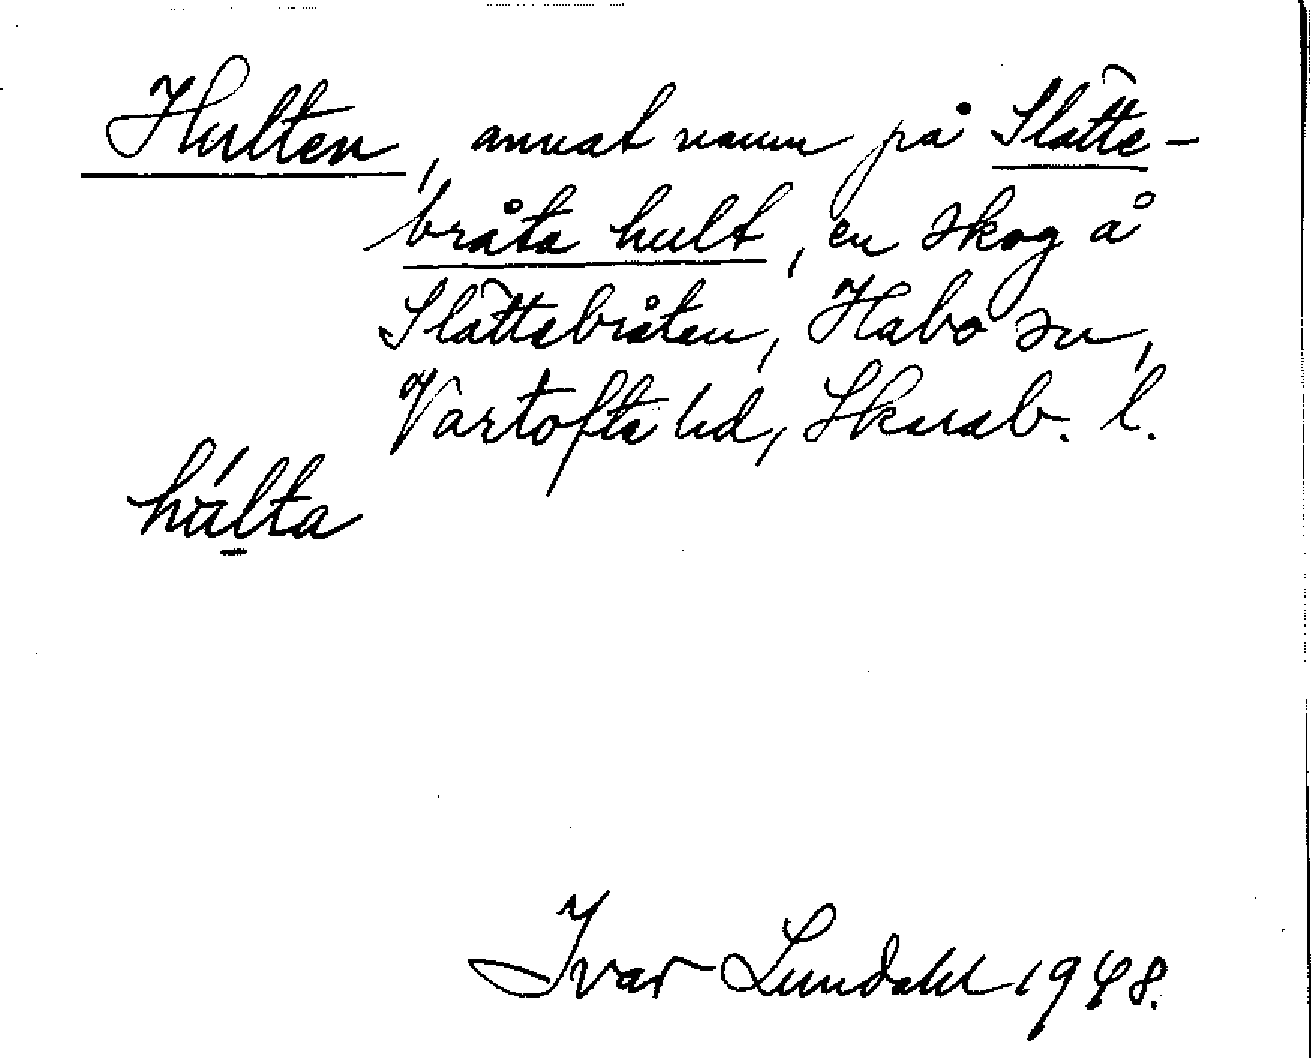 Hulten, annat namn på Slätte-
bråta hult, en skog å
Slättebråten, Habo sn,
Vartofta hd, Skarab. l.
hu̍lta
Ivar Lundahl 1948.